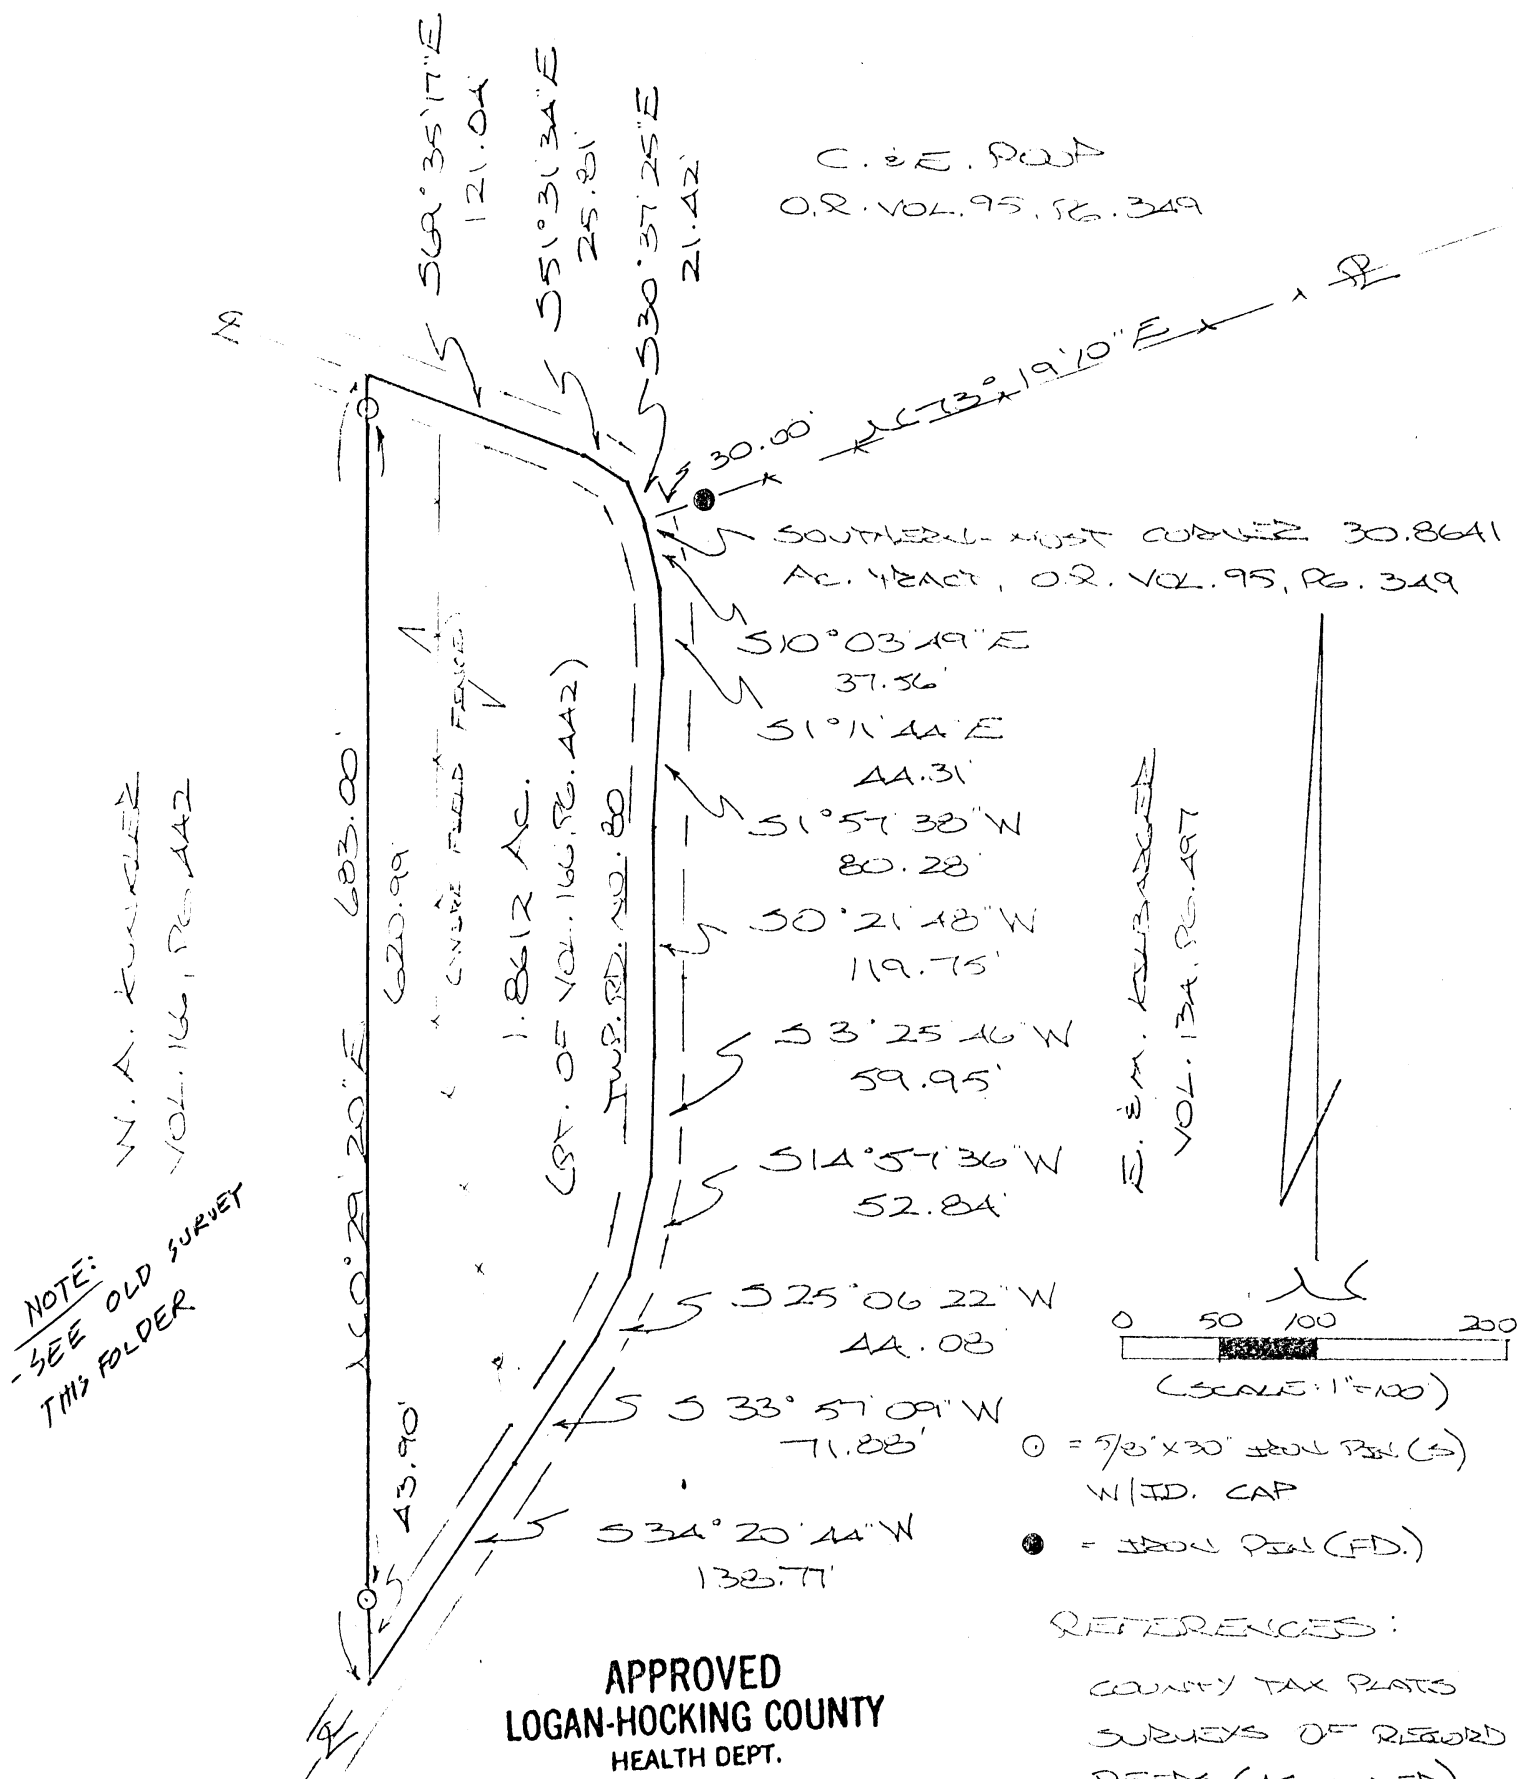 S69°35'17"E
121.04'
S51°31'34"E
25.81'
S30°37'25"E
21.42'
C. & E. POUP
O.R. VOL. 95, PG. 349
PL
PL
30.00'
N73°19'10"E
SOUTHERN-MOST CORNER 30.8641
AC. TRACT, O.R. VOL. 95, PG. 349
S10°03'49"E
37.56'
S1°11'44"E
44.31'
S1°57'38"W
80.28'
S0°21'48"W
119.75'
S3°25'46"W
59.95'
S14°57'36"W
52.84'
S25°06'22"W
44.08'
S33°57'09"W
71.88'
S34°20'44"W
138.77'
W. A. KUNKLER
VOL. 166, PG. 442
N0°29'20"E 683.00'
620.99'
43.90'
(WIRE FIELD FENCE)
1.8612 AC.
(PT. OF VOL. 166, PG. 442)
TWP. RD. NO. 80
E. & M. KILBARGER
VOL. 134, PG. 497
NOTE:
- SEE OLD SURVEY
THIS FOLDER
N
0 50 100 200
(SCALE: 1"=100')
= 5/8"X30" IRON PIN (S)
W/ID. CAP
= IRON PIN (FD.)
REFERENCES:
COUNTY TAX PLATS
SURVEYS OF RECORD
PL
APPROVED
LOGAN-HOCKING COUNTY
HEALTH DEPT.